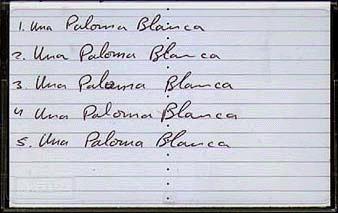 1. Una Paloma Blanca
2. Una Paloma Blanca
3. Una Paloma Blanca
4 Una Paloma Blanca
5. Una Paloma Blanca